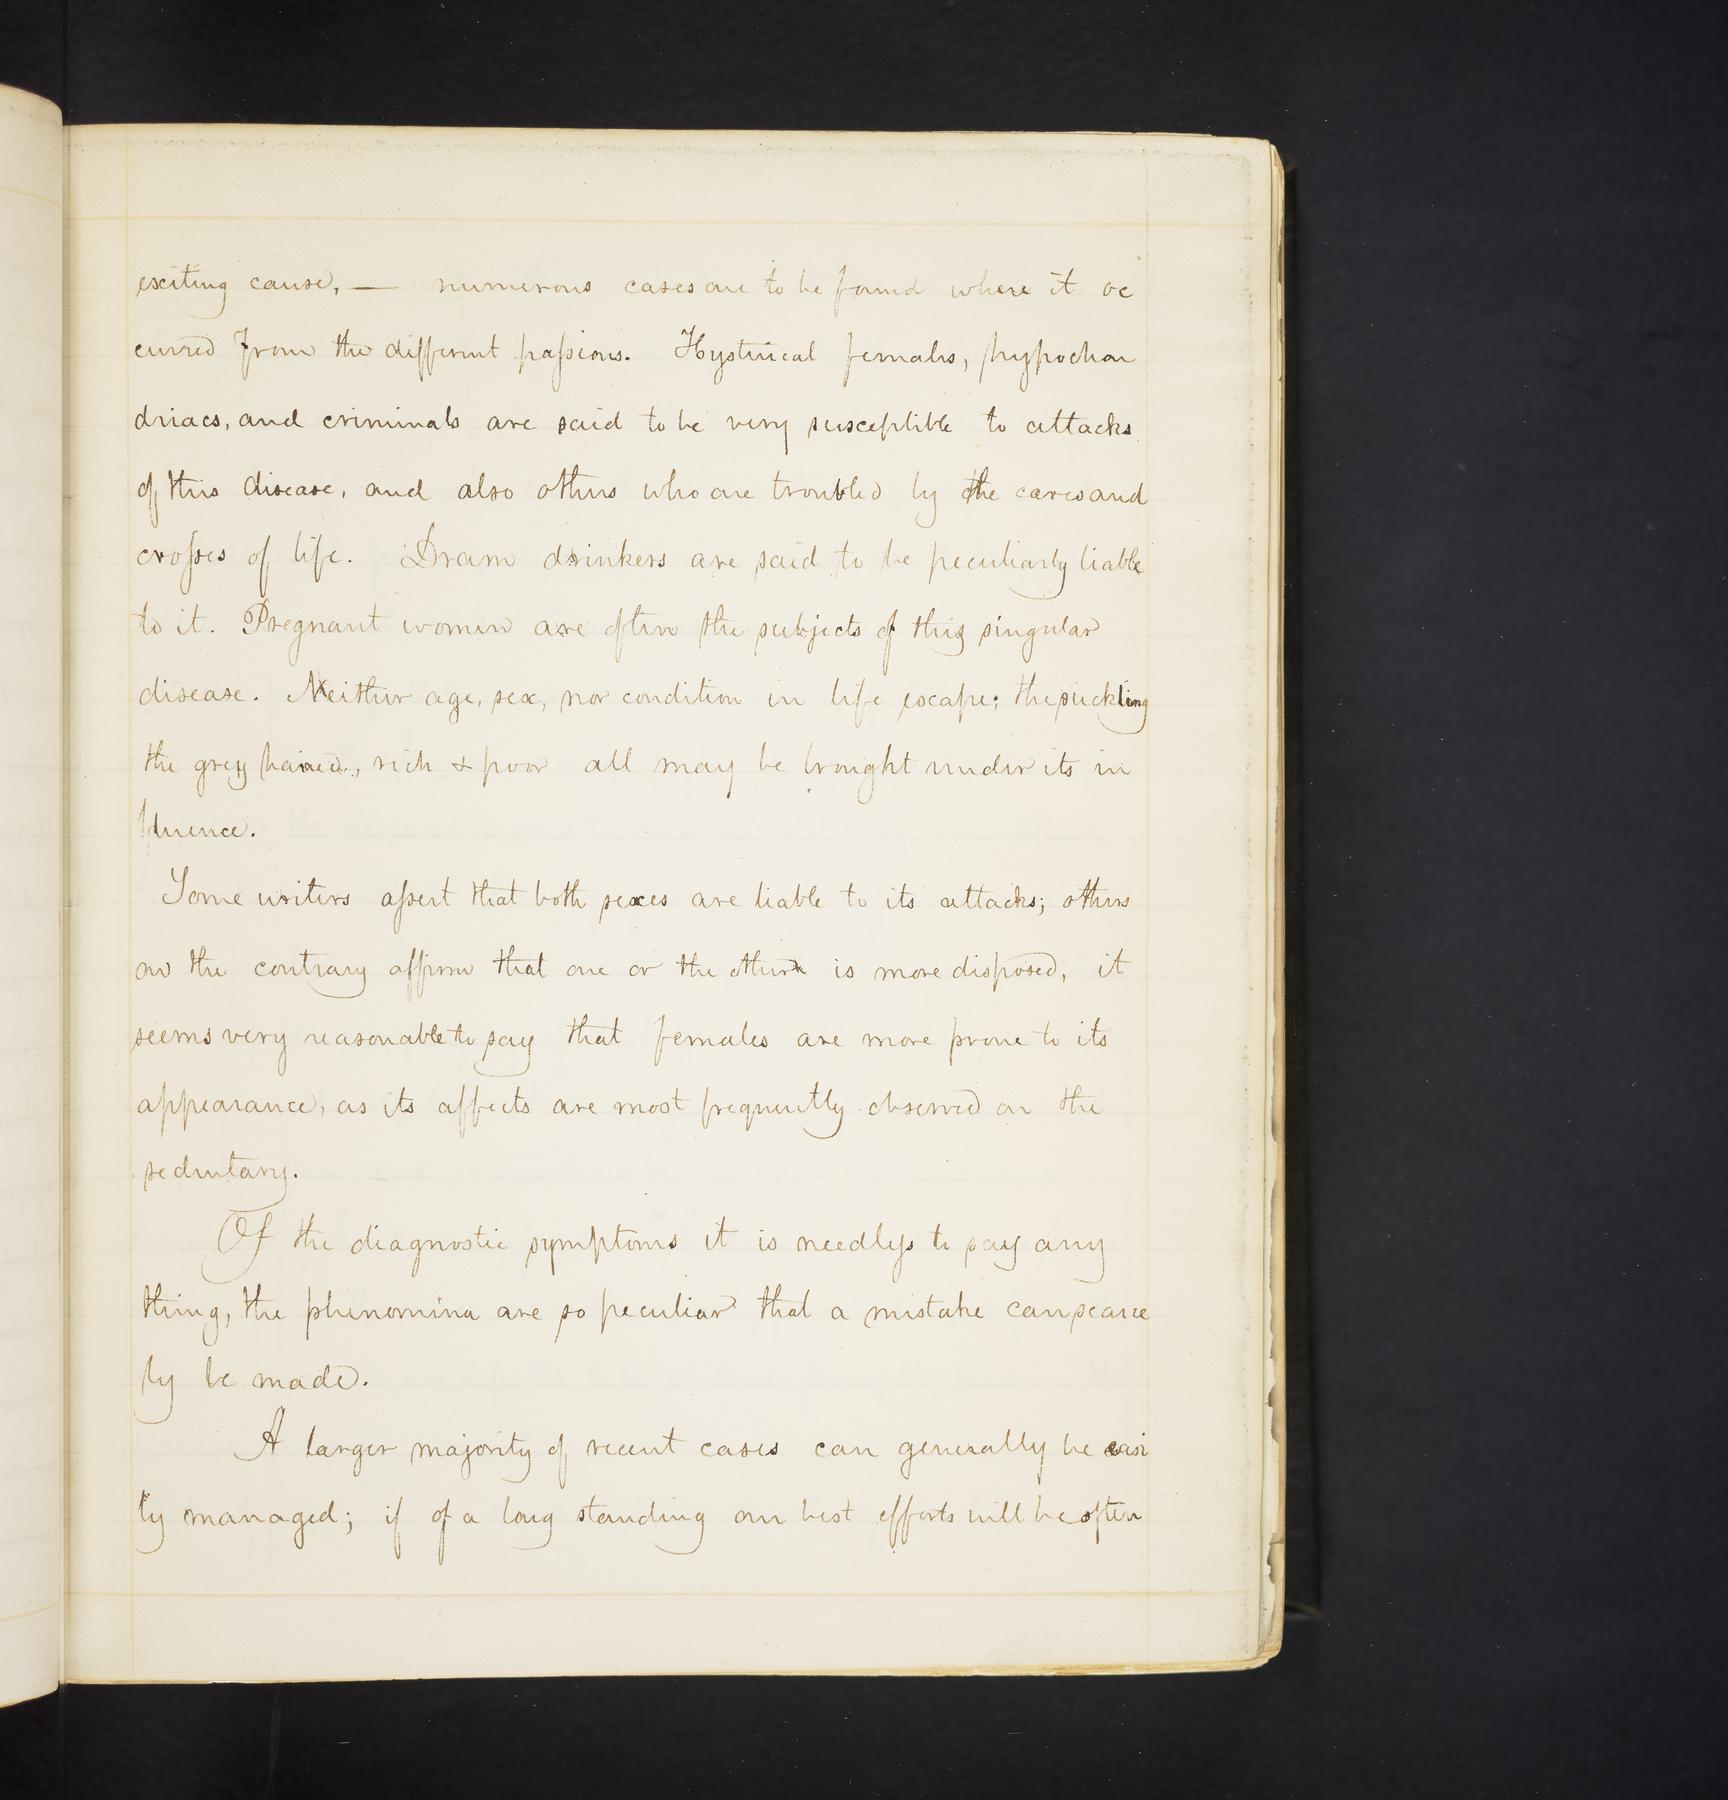 exciting cause, — numerous cases are to be found where it oc
cured from the different passions. Hysterical females, hypochon
driacs, and criminals are said to be very susceptible to attacks
of this disease, and also others who are troubled by the cares and
crosses of life. Dram drinkers are said to be peculiarly liable
to it. Pregnant women are often the subjects of this singular
disease. Neither age, sex, nor condition in life escape; the suckling
the grey haired, rich & poor all may be brought under its in
fluence.
Some writers assert that both sexes are liable to its attacks; others
on the contrary affirm that one or the other is more disposed, it
seems very reasonable to say that females are more prone to its
appearance, as its affects are most frequently observed on the
sedentary.
Of the diagnostic symptoms it is needless to say any
thing, the phenomina are so peculiar that a mistake can scarce
ly be made.
A larger majority of recent cases can generally be easi
ly managed; if of a long standing our best efforts will be often